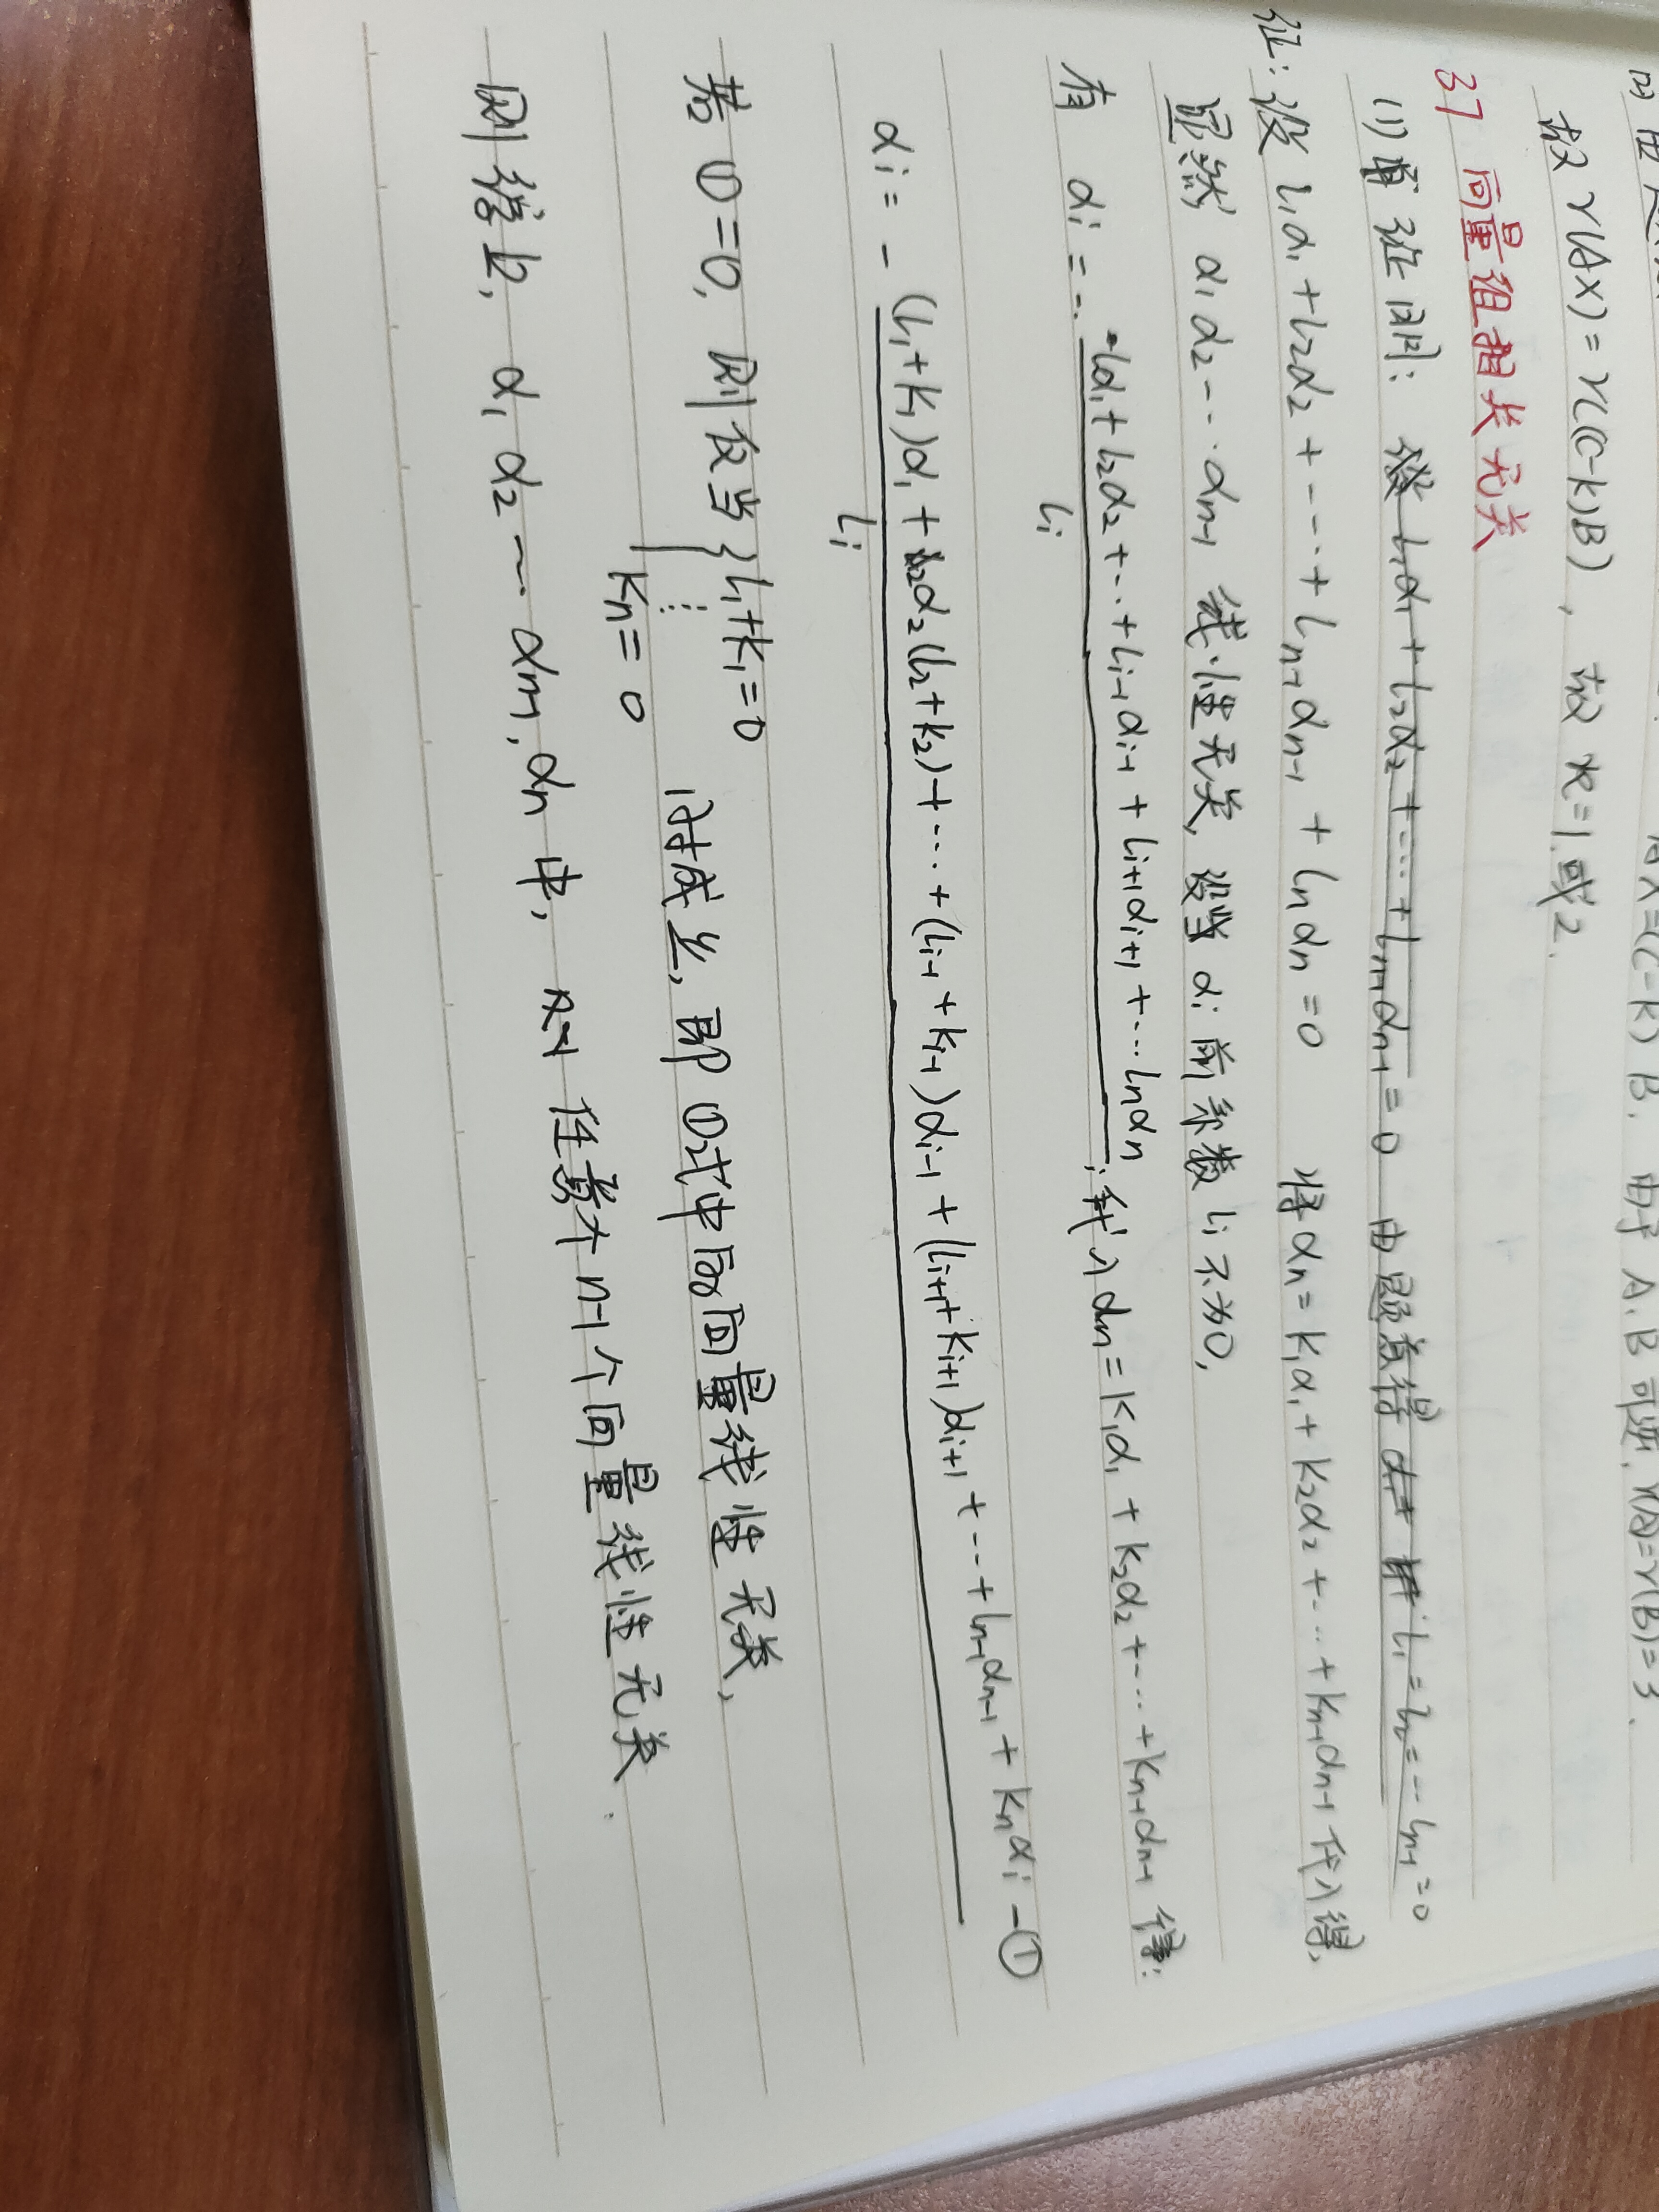 故 r(AX) = r((C-k)B), 故 x=1 或 2.
37 向量组相关无关
(1) 首证明: 设 l₁α₁ + l₂α₂ + ⋯ + lₙ₋₁αₙ₋₁ = 0 由题意得 l₁ = l₂ = ⋯ lₙ₋₁ = 0
证: 设 l₁α₁ + l₂α₂ + ⋯ + lₙ₋₁αₙ₋₁ + lₙαₙ = 0 将 αₙ = k₁α₁ + k₂α₂ + ⋯ + kₙ₋₁αₙ₋₁ 代入得,
显然 α₁ α₂ ⋯ αₙ₋₁ 线性无关, 设当 αᵢ 前系数 lᵢ 不为0,
有 αᵢ = - (l₁α₁ + l₂α₂ + ⋯ + lᵢ₋₁αᵢ₋₁ + lᵢ₊₁αᵢ₊₁ + ⋯ lₙαₙ) / lᵢ, 代入 αₙ = k₁α₁ + k₂α₂ + ⋯ + kₙ₋₁αₙ₋₁ 得:
αᵢ = - ((l₁+k₁)α₁ + α₂(l₂+k₂) + ⋯ + (lᵢ₋₁+kᵢ₋₁)αᵢ₋₁ + (lᵢ₊₁+kᵢ₊₁)αᵢ₊₁ + ⋯ + lₙ₋₁αₙ₋₁ + kₙαᵢ) / lᵢ -①
若 ①=0, 则仅当 { l₁+k₁=0 ⋮ kₙ=0 时成立, 即 ①式中向量线性无关,
则综上, α₁ α₂ ⋯ αₘ, αₙ 中, 任意 n-1 个向量线性无关.